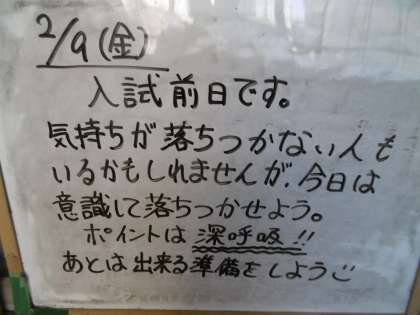 2/9(金)
入試前日です。
気持ちが落ちつかない人も
いるかもしれませんが、今日は
意識して落ちつかせよう。
ポイントは深呼吸!!
あとは出来る準備をしよう